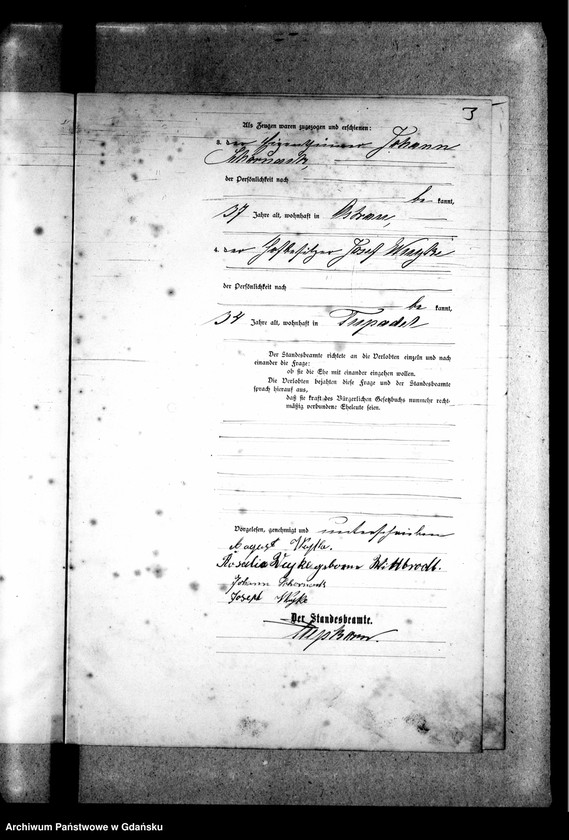 3
Als Zeugen waren zugezogen und erschienen:
der Eigenthümer Johann
der Persönlichkeit nach
be kannt,
37 Jahre alt, wohnhaft in
der Hofbesitzer Josef
der Persönlichkeit nach
be kannt,
34 Jahre alt, wohnhaft in
Der Standesbeamte richtete an die Verlobten einzeln und nach
einander die Frage:
ob sie die Ehe mit einander eingehen wollen.
Die Verlobten bejahten diese Frage und der Standesbeamte
sprach hierauf aus,
daß sie kraft des Bürgerlichen Gesetzbuchs nunmehr recht-
mäßig verbundene Eheleute seien.
Vorgelesen, genehmigt und unterschrieben
August
Rosalia geborne Wittbrodt.
Johann
Joseph
Der Standesbeamte.
Archiwum Państwowe w Gdańsku